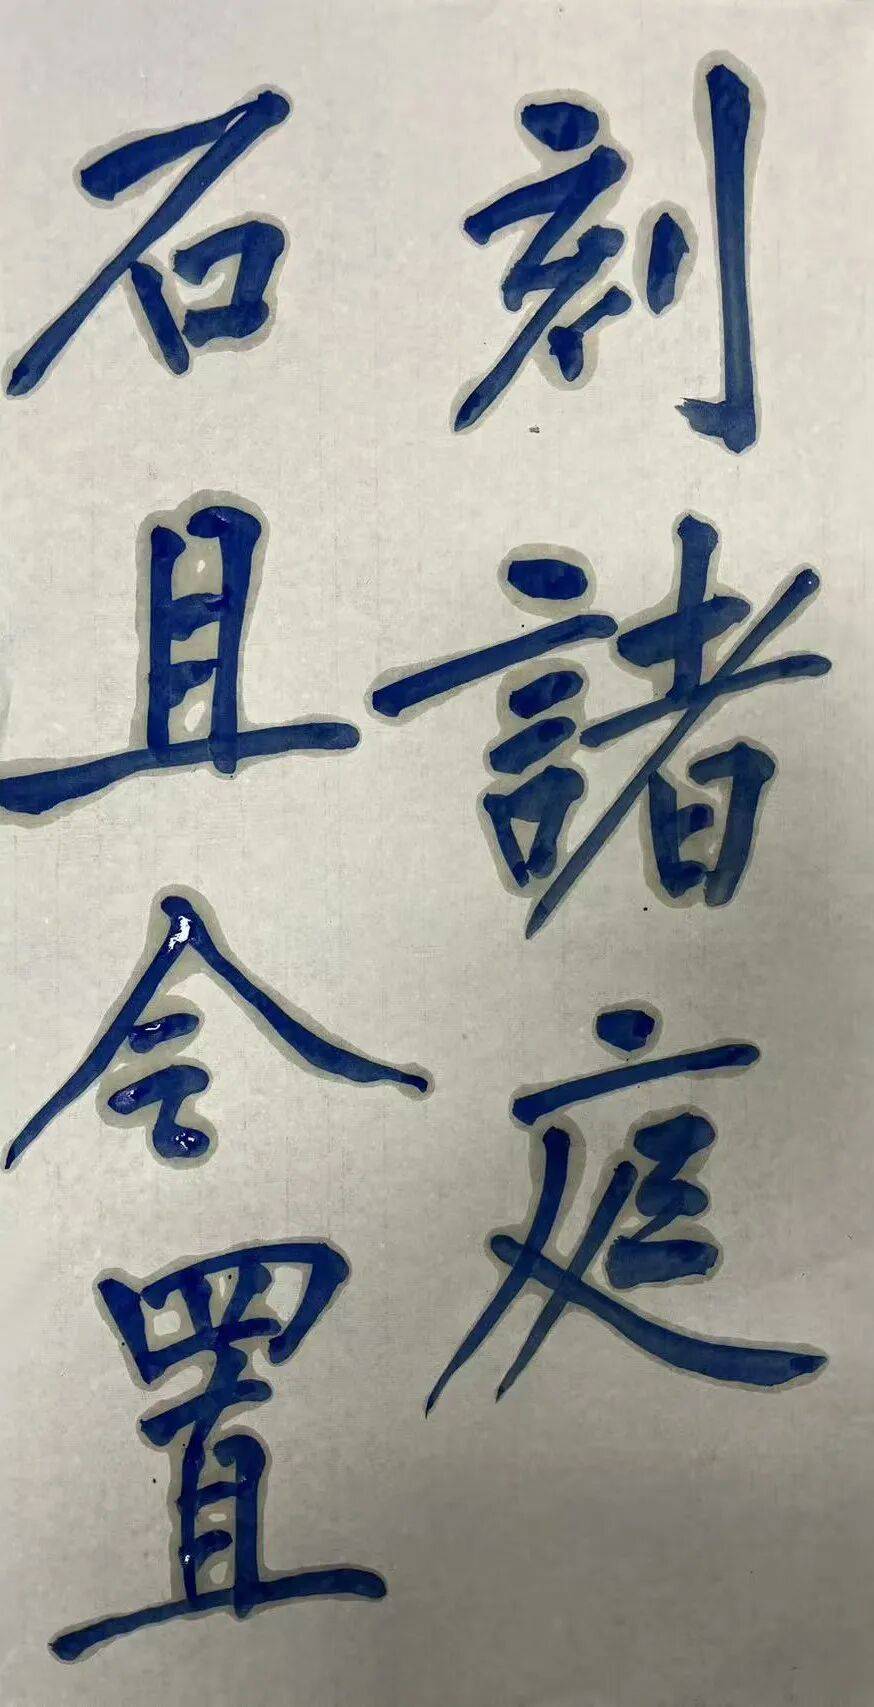 刻諸庭
石且令置